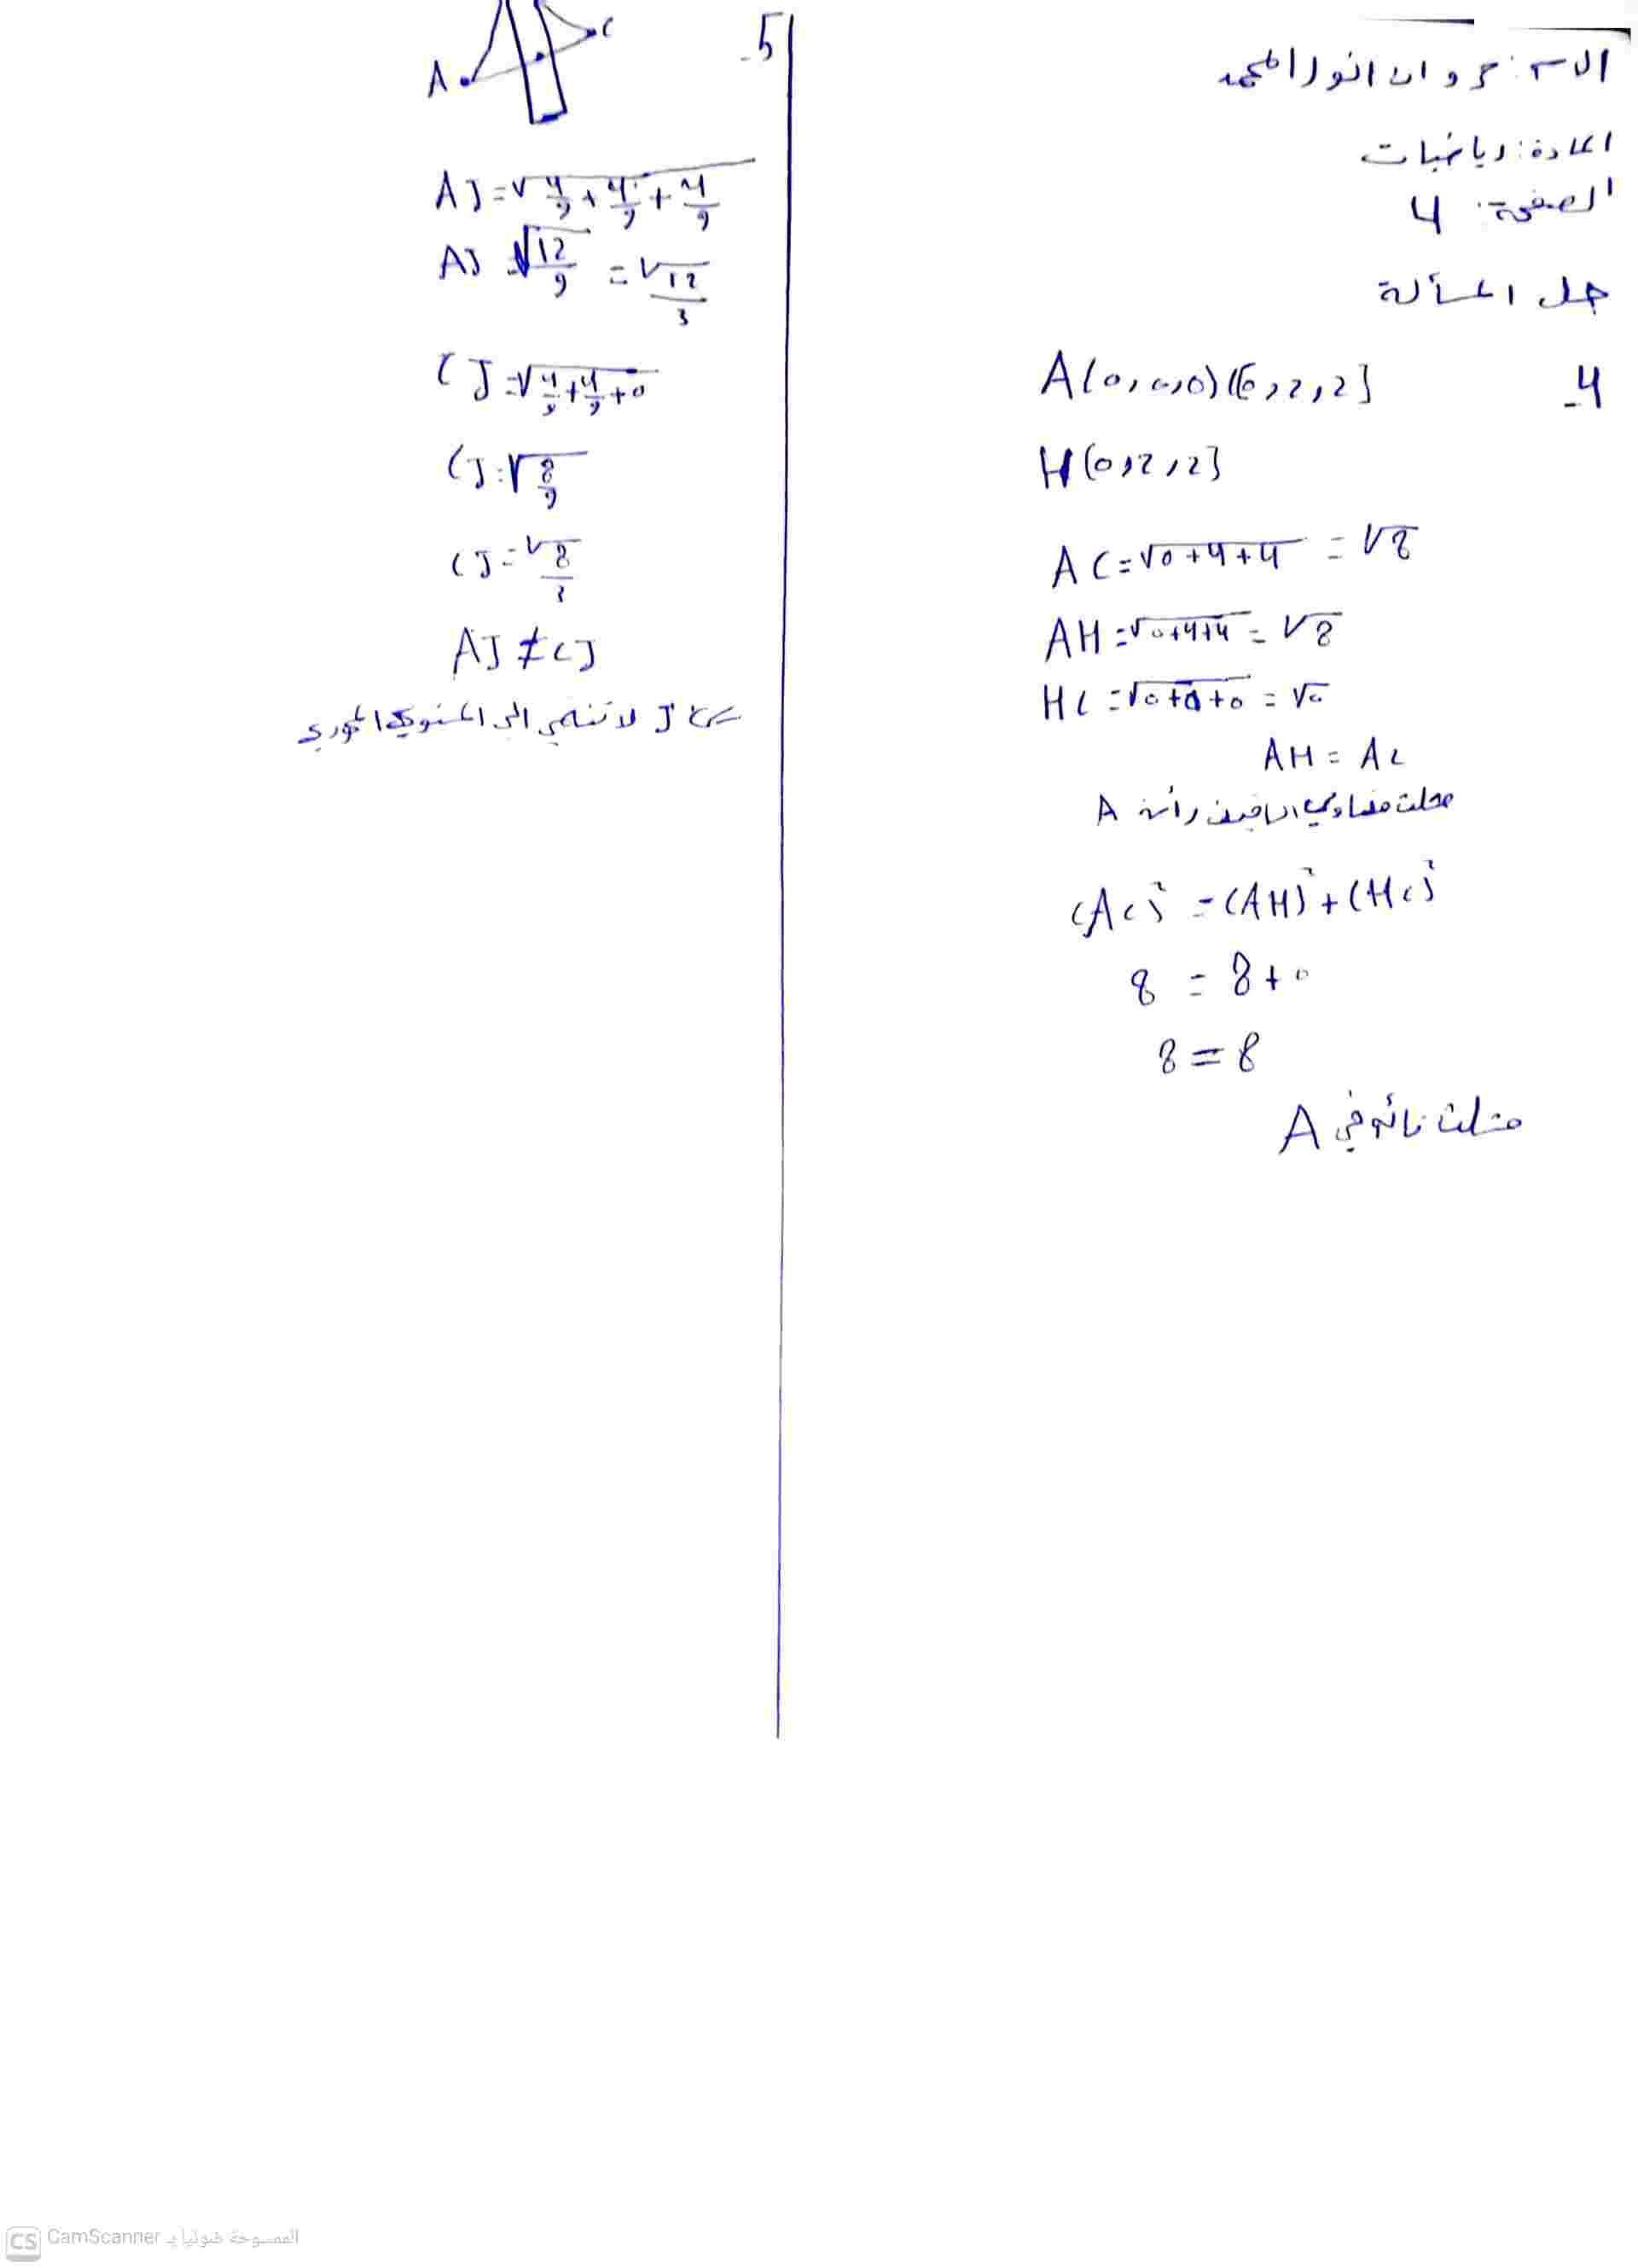 الاسم: مروان انور المحمد
المادة: رياضيات
الصفحة: 4
حل المسألة
4-
A(0,0,0) C(0,2,2)
H(0,2,2)
AC=√0+4+4 = √8
AH=√0+4+4 = √8
HC=√0+0+0 = √0
AH = AC
مثلث متساوي الساقين رأسه A
(AC)² = (AH)² + (HC)²
8 = 8+0
8 = 8
مثلث قائم في A
5-
A C
AJ=√4/9+4/9+4/9
AJ=√12/9 = √12/3
CJ=√4/9+4/9+0
CJ=√8/9
CJ=√8/3
AJ≠CJ
J لا تنتمي الى المستوي المحوري
CS CamScanner الممسوحة ضوئيا بـ